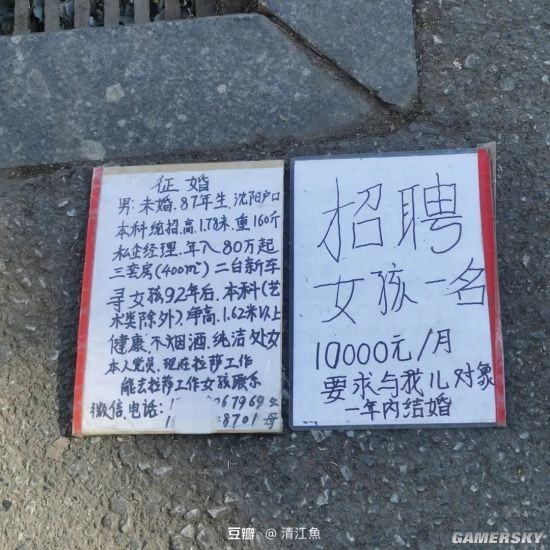 征婚
男:未婚.87年生.沈阳户口
本科统招.高1.78米.重160斤
私企经理.年入80万起
三套房(400m²)二台新车
寻女孩92年后.本科(艺
术类除外).净高.1.62米以上
健康.不烟酒.纯洁处女
本人党员.现在拉萨工作
能去拉萨工作女孩联系
微信.电话:
招聘
女孩一名
10000元/月
要求与我儿对象
一年内结婚
豆瓣 @清江魚
GAMERSKY